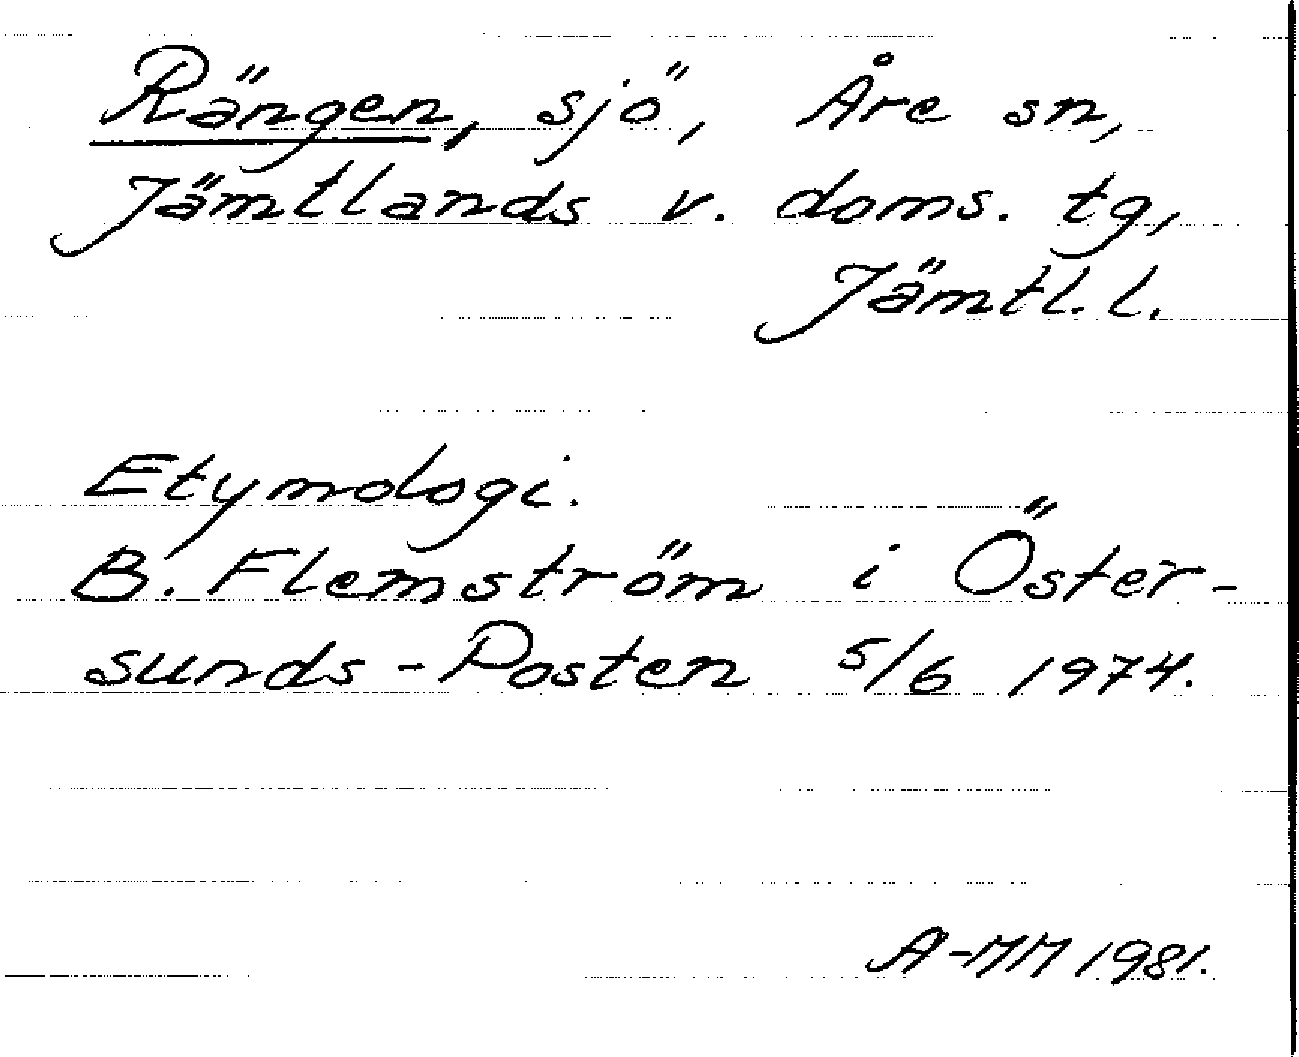 Rängen, sjö, Åre sn,
Jämtlands v. doms. tg,
Jämtl. l.
Etymologi.
B. Flemström i Öster-
sunds-Posten 5/6 1974.
A-MM 1981.